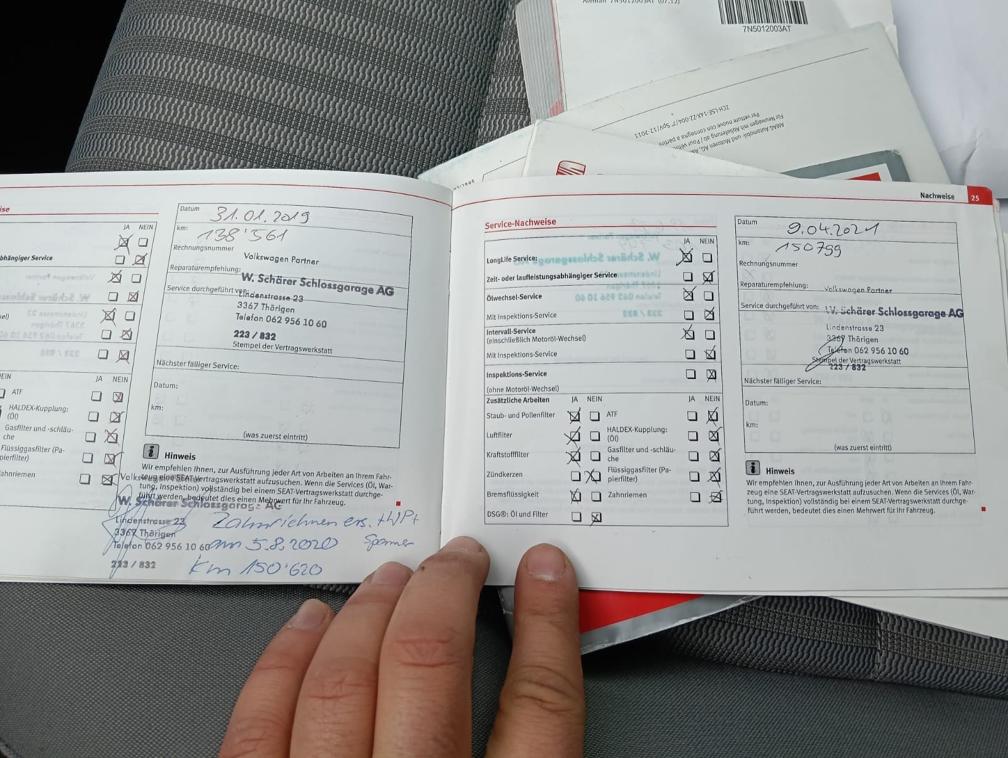 7N5012003AT
ZCH-LSE-1AX/ZZ-004/7 SpV/12-2011
Für Neuwagen mit Ablieferung ab / Pour
Per vetture nuove con consegna a partire
AMAG Automobil- und Motoren AG,
Nachweise 25
JA NEIN
bhängiger Service
ATF
HALDEX-Kupplung:
(Öl)
Gasfilter und -schläu-
che
Flüssiggasfilter (Pa-
pierfilter)
Zahnriemen
JA NEIN
Datum 31.01.2019
km: 138'561
Rechnungsnummer
Volkswagen Partner
Reparaturempfehlung:
W. Schärer Schlossgarage AG
Service durchgeführt von:
Lindenstrasse 23
3367 Thörigen
Telefon 062 956 10 60
223 / 832
Stempel der Vertragswerkstatt
Nächster fälliger Service:
Datum:
km:
(was zuerst eintritt)
Hinweis
Wir empfehlen Ihnen, zur Ausführung jeder Art von Arbeiten an Ihrem Fahr-
zeug eine SEAT-Vertragswerkstatt aufzusuchen. Wenn die Services (Öl, War-
tung, Inspektion) vollständig bei einem SEAT-Vertragswerkstatt durchge-
führt werden, bedeutet dies einen Mehrwert für Ihr Fahrzeug.
W. Schärer Schlossgarage AG
Lindenstrasse 23
3367 Thörigen
Telefon 062 956 10 60
223 / 832
Zahnriehmen ers.
am 5.8.2020 Spanner
km 150'620
Service-Nachweise
JA NEIN
LongLife Service:
Zeit- oder laufleistungsabhängiger Service
Ölwechsel-Service
Mit Inspektions-Service
Intervall-Service
(einschließlich Motoröl-Wechsel)
Mit Inspektions-Service
Inspektions-Service
(ohne Motoröl-Wechsel)
Zusätzliche Arbeiten JA NEIN JA NEIN
Staub- und Pollenfilter ATF
Luftfilter HALDEX-Kupplung:
(Öl)
Kraftstofffilter Gasfilter und -schläu-
che
Zündkerzen Flüssiggasfilter (Pa-
pierfilter)
Bremsflüssigkeit Zahnriemen
DSG®: Öl und Filter
Datum 9.04.2021
km: 150799
Rechnungsnummer
Reparaturempfehlung:
Volkswagen Partner
Service durchgeführt von: W. Schärer Schlossgarage AG
Lindenstrasse 23
3367 Thörigen
Telefon 062 956 10 60
Stempel der Vertragswerkstatt
223 / 832
Nächster fälliger Service:
Datum:
km:
(was zuerst eintritt)
Hinweis
Wir empfehlen Ihnen, zur Ausführung jeder Art von Arbeiten an Ihrem Fahr-
zeug eine SEAT-Vertragswerkstatt aufzusuchen. Wenn die Services (Öl, War-
tung, Inspektion) vollständig bei einem SEAT-Vertragswerkstatt durchge-
führt werden, bedeutet dies einen Mehrwert für Ihr Fahrzeug.